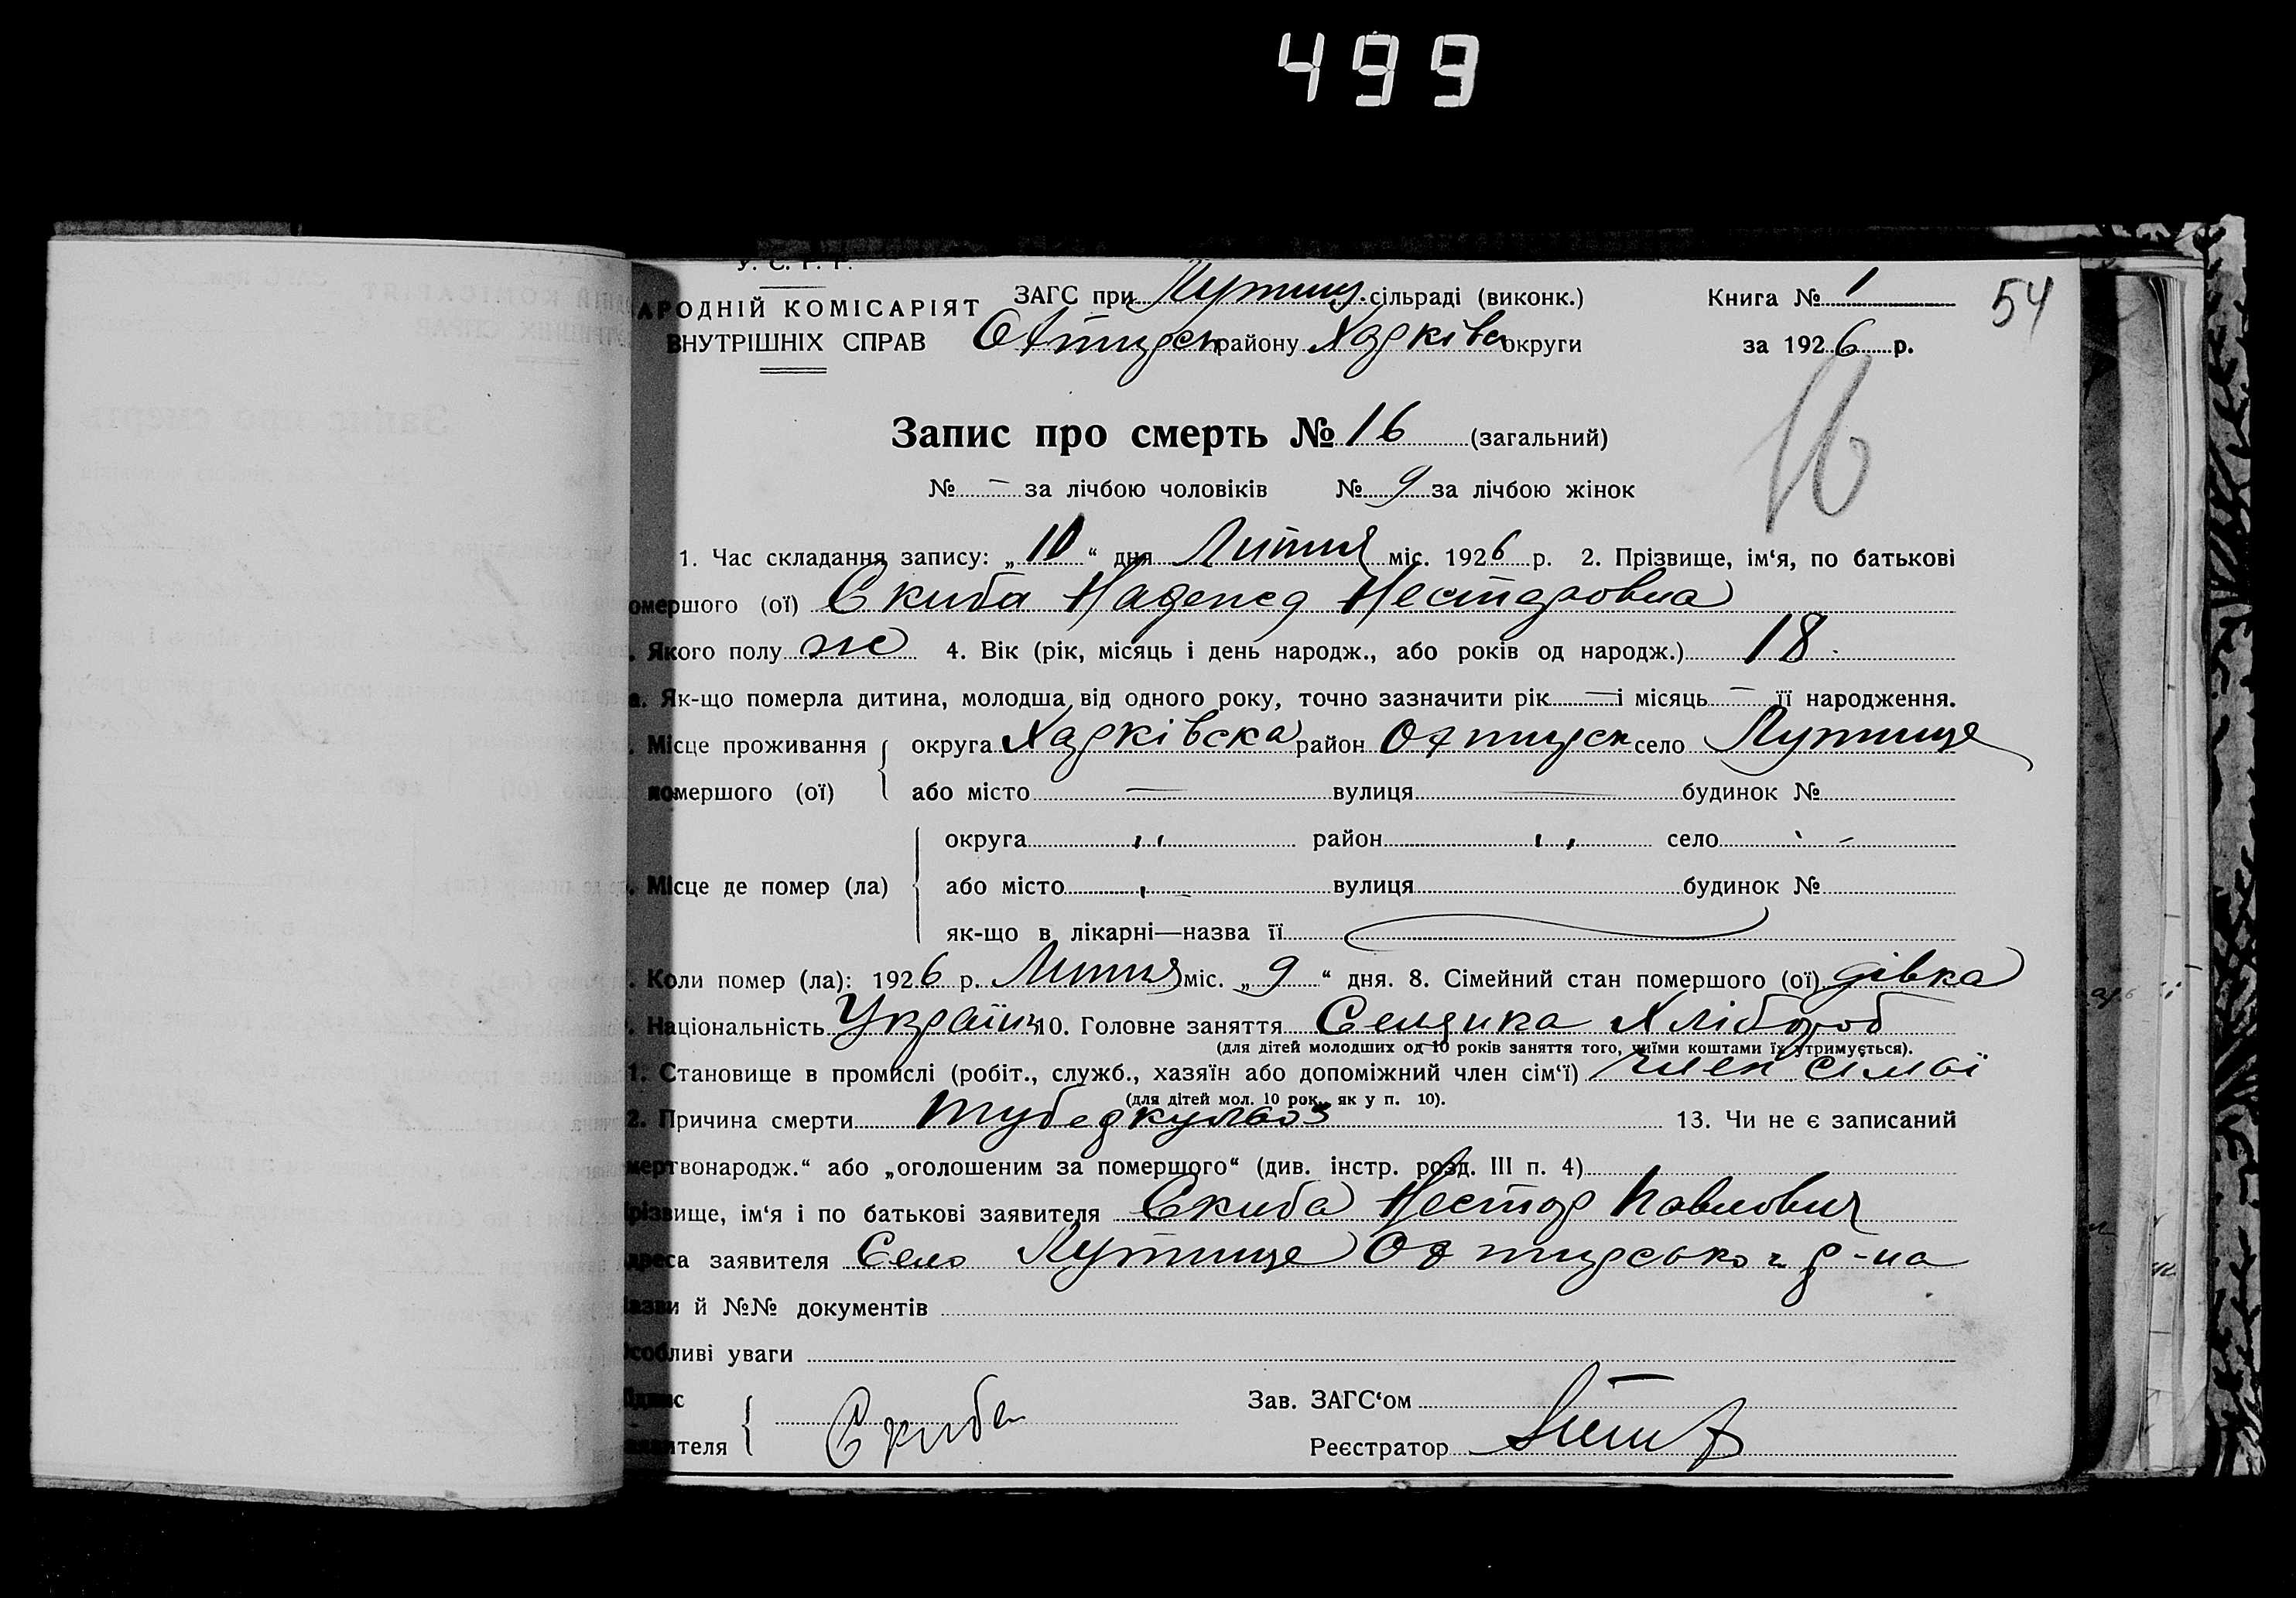 499
У. С. Р. Р.
АРОДНІЙ КОМІСАРІЯТ ЗАГС при Лутищ. сільраді (виконк.) Книга № 1 54
ВНУТРІШНІХ СПРАВ Охтирськ району Харківс округи за 1926 р.
16
Запис про смерть № 16 (загальний)
№ – за лічбою чоловіків № 9 за лічбою жінок
1. Час складання запису: „10“ дня Липня міс. 1926 р. 2. Прізвище, ім‘я, по батькові
омершого (ої) Скиба Надежд Несторовна
. Якого полу ж 4. Вік (рік, місяць і день народж., або років од народж.) 18
а. Як-що померла дитина, молодша від одного року, точно зазначити рік — і місяць — її народження.
. Місце проживання округа Харківска район Охтирск село Лутище
помершого (ої) або місто — вулиця — будинок №
округа „ район „ село „
. Місце де помер (ла) або місто „ вулиця будинок №
як-що в лікарні—назва її
. Коли помер (ла): 1926 р. Липня міс. „9“ дня. 8. Сімейний стан помершого (ої) дівка
. Національність Україн 10. Головне заняття Селянка Хлібороб
(для дітей молодших од 10 років заняття того, чиїми коштами їх утримується).
1. Становище в промислі (робіт., служб., хазяїн або допоміжний член сім‘ї) член сімьї
(для дітей мол. 10 рок. як у п. 10).
2. Причина смерти туберкульоз 13. Чи не є записаний
мертвонародж.“ або „оголошеним за помершого“ (див. інстр. розд. III п. 4)
різвище, ім‘я і по батькові заявителя Скиба Нестор Павлович
дреса заявителя Село Лутище Охтирсько г р-на
азви й №№ документів
Особливі уваги
ідпис Скиба Зав. ЗАГС‘ом
аявителя Реєстратор